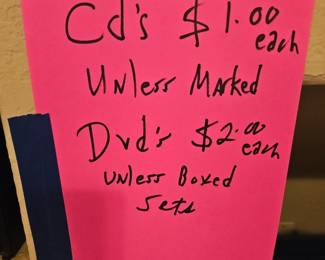 Cd's $1.00 each
Unless Marked
Dvd's $2.00 each
Unless Boxed
Sets